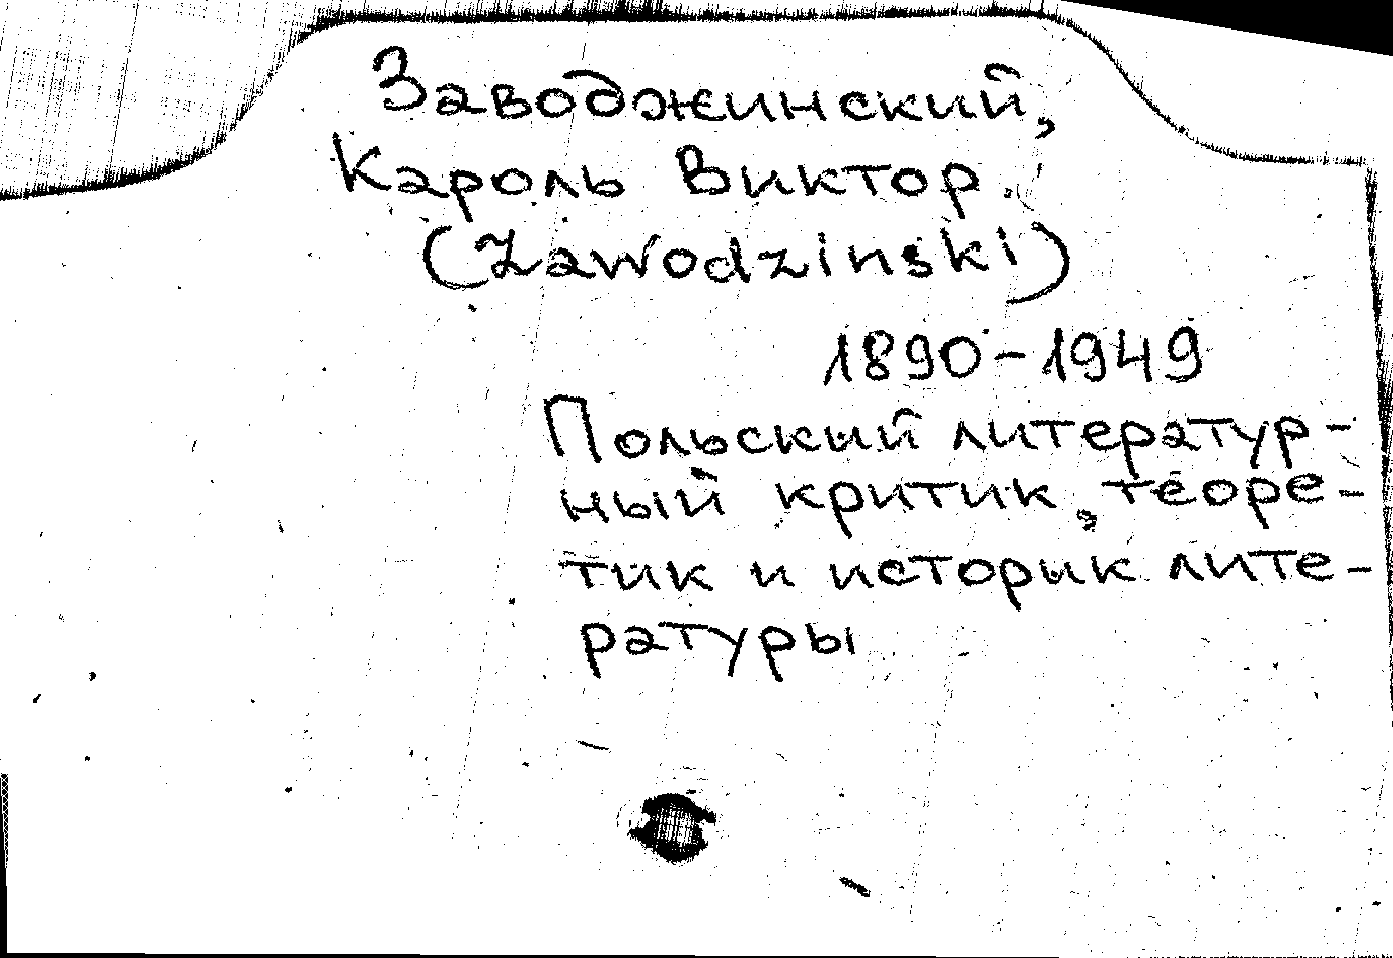 Заводжинский,
Кароль Виктор.
(Zawodzinski)
1890-1949
Польский литератур-
ный критик, теоре-
тик и историк лите-
ратуры